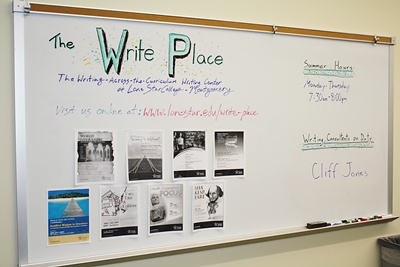 The Write Place
The Writing-Across-the-Curriculum Writing Center
at Lone Star College-Montgomery
Visit us online at: www.lonestar.edu/write-place
FOCUS
Summer Hours:
Monday-Thursday
7:30am-8:00pm
Writing Consultants on Duty:
Cliff Jones